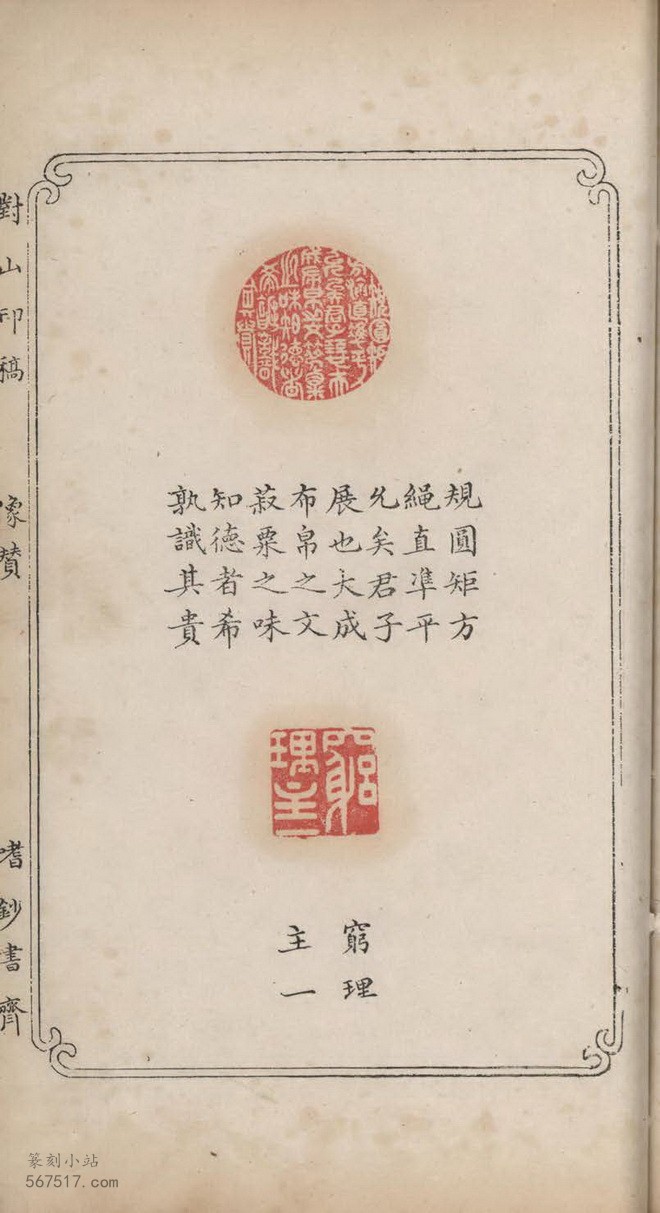 規圓矩方
繩直準平
允矣君子
展也大成
布帛之文
菽粟之味
知德者希
孰識其貴
窮理
主一
對山印稿 像贊 嗜鈔書齋
篆刻小站
567517.com